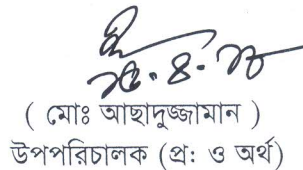 ( মোঃ আছাদুজ্জামান )
উপপরিচালক (প্র: ও অর্থ)